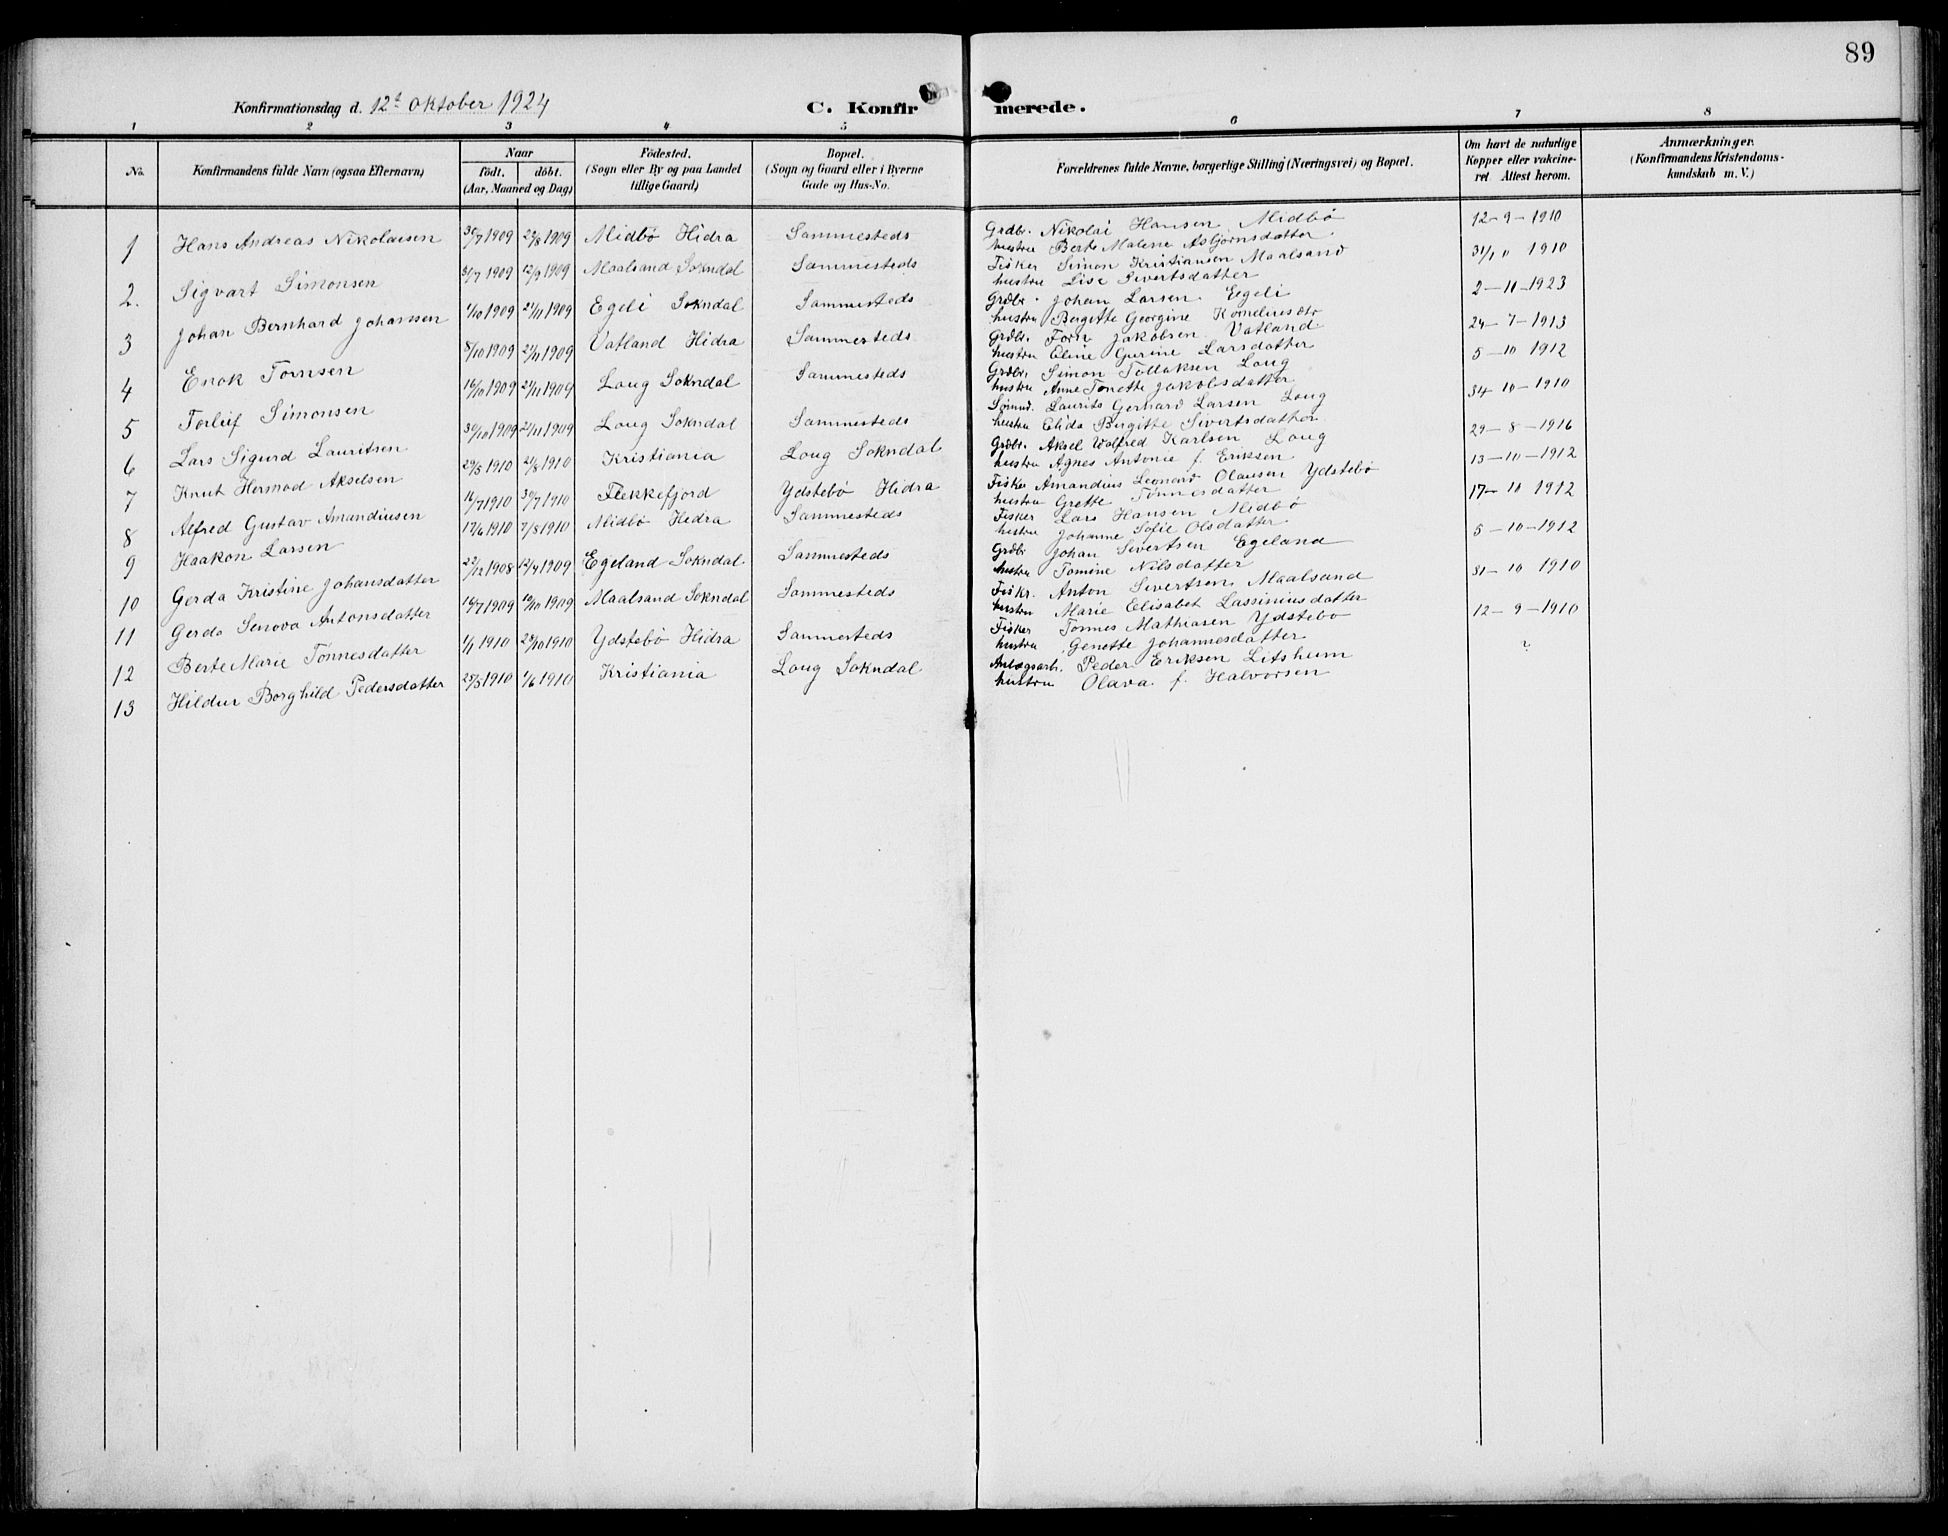 89
Konfirmationsdag d. 12t oktober 1924 C. Konfirmerede.
1 2 3 4 5 6 7 8
No. Konfirmandens fulde Navn (ogsaa Efternavn) Naar födt. döbt. (Aar, Maaned og Dag) Födested. (Sogn eller By og paa Landet tillige Gaard) Bopæl. (Sogn og Gaard eller i Byerne Gade og Hus-No. Forældrenes fulde Navne, borgerlige Stilling (Næringsvei) og Bopæl. Om havt de naturlige Kopper eller vakcineret Attest herom. Anmærkninger. (Konfirmandens Kristendomskundskab m. V.)
1 Hans Andreas Nikolaisen 30/7 1909 22/8 1909 Midbö Hidra Sammesteds Grdbr. Nikolai Hansen Midbö 12-9-1910
hustru Berte Malene Asbjörnsdatter.
2. Sigvart Simonsen 31/7 1909 12/9 1909 Maalsand Sokndal Sammesteds Fisker Simon Kristiansen Maalsand 31/10 1910
hustru Lise Sivertsdatter
3 Johan Bernhard Johansen 1/10 1909 21/11 1909 Egeli Sokndal Sammesteds Grdbr. Johan Larsen Egeli 2-11-1923
hustru Bergitte Georgine Korneliusdtr
4 Enok Tornsen 8/10 1909 21/11 1909 Vatland Hidra Sammesteds Grdbr. Torn Jakobsen Vatland 24-7-1913
hustru Eline Gurine Larsdatter
5 Torleif Simonsen 16/10 1909 21/11 1909 Loug Sokndal Sammesteds Grdbr. Simon Tollaksen Loug 5-10 1912
hustru Anne Tonette Jakobsdatter
6 Lars Sigurd Lauritsen 30/10 1909 21/11 1909 Loug Sokndal Sammesteds Sömnd. Laurits Gerhard Larsen Loug 34 10-1910
hustru Elida Birgitte Sivertsdatter
7 Knut Hermod Akselsen 29/5 1910 21/8 1910 Kristiania Loug Sokndal Grdbr. Aksel Wolfred Karlsen Loug 29-8-1916
hustru Agnes Antonie f. Eriksen
8 Alfred Gustav Amandiusen 16/7 1910 30/7 1910 Flekkefjord Ydstebö Hidra Fisker Amandius Leonard Olausen Ydstebö 13-10-1912
hustru Grette Tönnesdatter
9 Haakon Larsen 17/6 1910 7/8 1910 Midbö Hidra Sammesteds Fisker Lars Hansen Midbö 17-10 1912
hustru Johanne Sofie Olsdatter
10 Gerda Kristine Johansdatter 22/12 1908 12/4 1909 Egeland Sokndal Sammesteds Grdbr Johan Sivertsen Egeland 5-10-1912
hustru Tomine Nilsdatter
11 Gerda Senova Antonsdatter 16/7 1909 10/10 1909 Maalsand Sokndal Sammesteds Fiskr. Anton Sivertsen Maalsand 31-10 1910
hustru Marie Elisabet Lassiniusdatter
12 Berte Marie Tönnesdatter 1/1 1910 23/10 1910 Ydstebö Hidra Sammesteds Fisker Tönnes Mathiasen Ydstebö 12-9-1910
hustru Genette Johannesdatter
13 Hildur Borghild Pedersdatter 25/3 1910 1/6 1910 Kristiania Loug Sokndal Anlægsarb. Peder Eriksen Litshum ?
hustru Olava f. Halvorsen